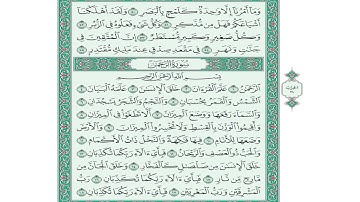 وَمَا أَمْرُنَا إِلَّا وَٰحِدَةٌ كَلَمْحٍۭ بِٱلْبَصَرِ ۝ وَلَقَدْ أَهْلَكْنَآ
أَشْيَاعَكُمْ فَهَلْ مِن مُّدَّكِرٍ ۝ وَكُلُّ شَىْءٍ فَعَلُوهُ فِى ٱلزُّبُرِ ۝
وَكُلُّ صَغِيرٍ وَكَبِيرٍ مُّسْتَطَرٌ ۝ إِنَّ ٱلْمُتَّقِينَ فِى
جَنَّٰتٍ وَنَهَرٍ ۝ فِى مَقْعَدِ صِدْقٍ عِندَ مَلِيكٍ مُّقْتَدِرٍۭ ۝
سُورَةُ الرَّحْمَٰن
بِسْمِ ٱللَّهِ ٱلرَّحْمَٰنِ ٱلرَّحِيمِ
ٱلرَّحْمَٰنُ ۝ عَلَّمَ ٱلْقُرْءَانَ ۝ خَلَقَ ٱلْإِنسَٰنَ ۝ عَلَّمَهُ ٱلْبَيَانَ ۝
ٱلشَّمْسُ وَٱلْقَمَرُ بِحُسْبَانٍ ۝ وَٱلنَّجْمُ وَٱلشَّجَرُ يَسْجُدَانِ ۝
وَٱلسَّمَآءَ رَفَعَهَا وَوَضَعَ ٱلْمِيزَانَ ۝ أَلَّا تَطْغَوْا۟ فِى ٱلْمِيزَانِ ۝
وَأَقِيمُوا۟ ٱلْوَزْنَ بِٱلْقِسْطِ وَلَا تُخْسِرُوا۟ ٱلْمِيزَانَ ۝ وَٱلْأَرْضَ
وَضَعَهَا لِلْأَنَامِ ۝ فِيهَا فَٰكِهَةٌ وَٱلنَّخْلُ ذَاتُ ٱلْأَكْمَامِ ۝
وَٱلْحَبُّ ذُو ٱلْعَصْفِ وَٱلرَّيْحَانُ ۝ فَبِأَىِّ ءَالَآءِ رَبِّكُمَا تُكَذِّبَانِ ۝
خَلَقَ ٱلْإِنسَٰنَ مِن صَلْصَٰلٍ كَٱلْفَخَّارِ ۝ وَخَلَقَ ٱلْجَآنَّ مِن
مَّارِجٍ مِّن نَّارٍ ۝ فَبِأَىِّ ءَالَآءِ رَبِّكُمَا تُكَذِّبَانِ ۝ رَبُّ
ٱلْمَشْرِقَيْنِ وَرَبُّ ٱلْمَغْرِبَيْنِ ۝ فَبِأَىِّ ءَالَآءِ رَبِّكُمَا تُكَذِّبَانِ ۝